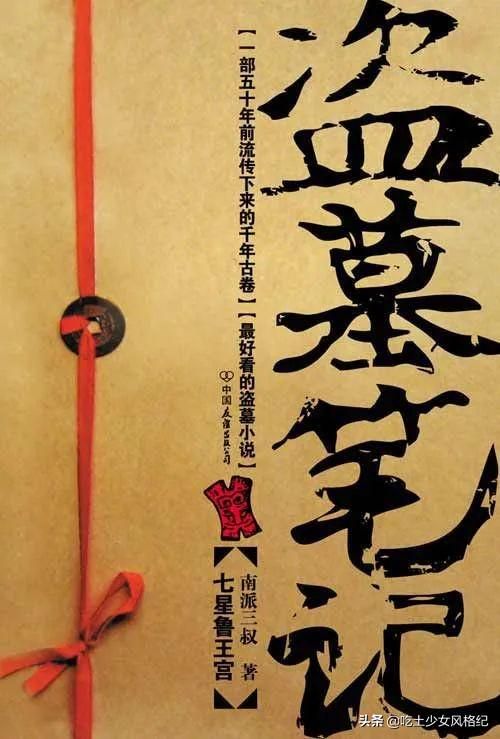 盗墓笔记
【一部五十年前流传下来的千年古卷】【最好看的盗墓小说】
中国友谊出版公司
南派三叔 著
【七星鲁王宫】
头条 @吃土少女风格纪